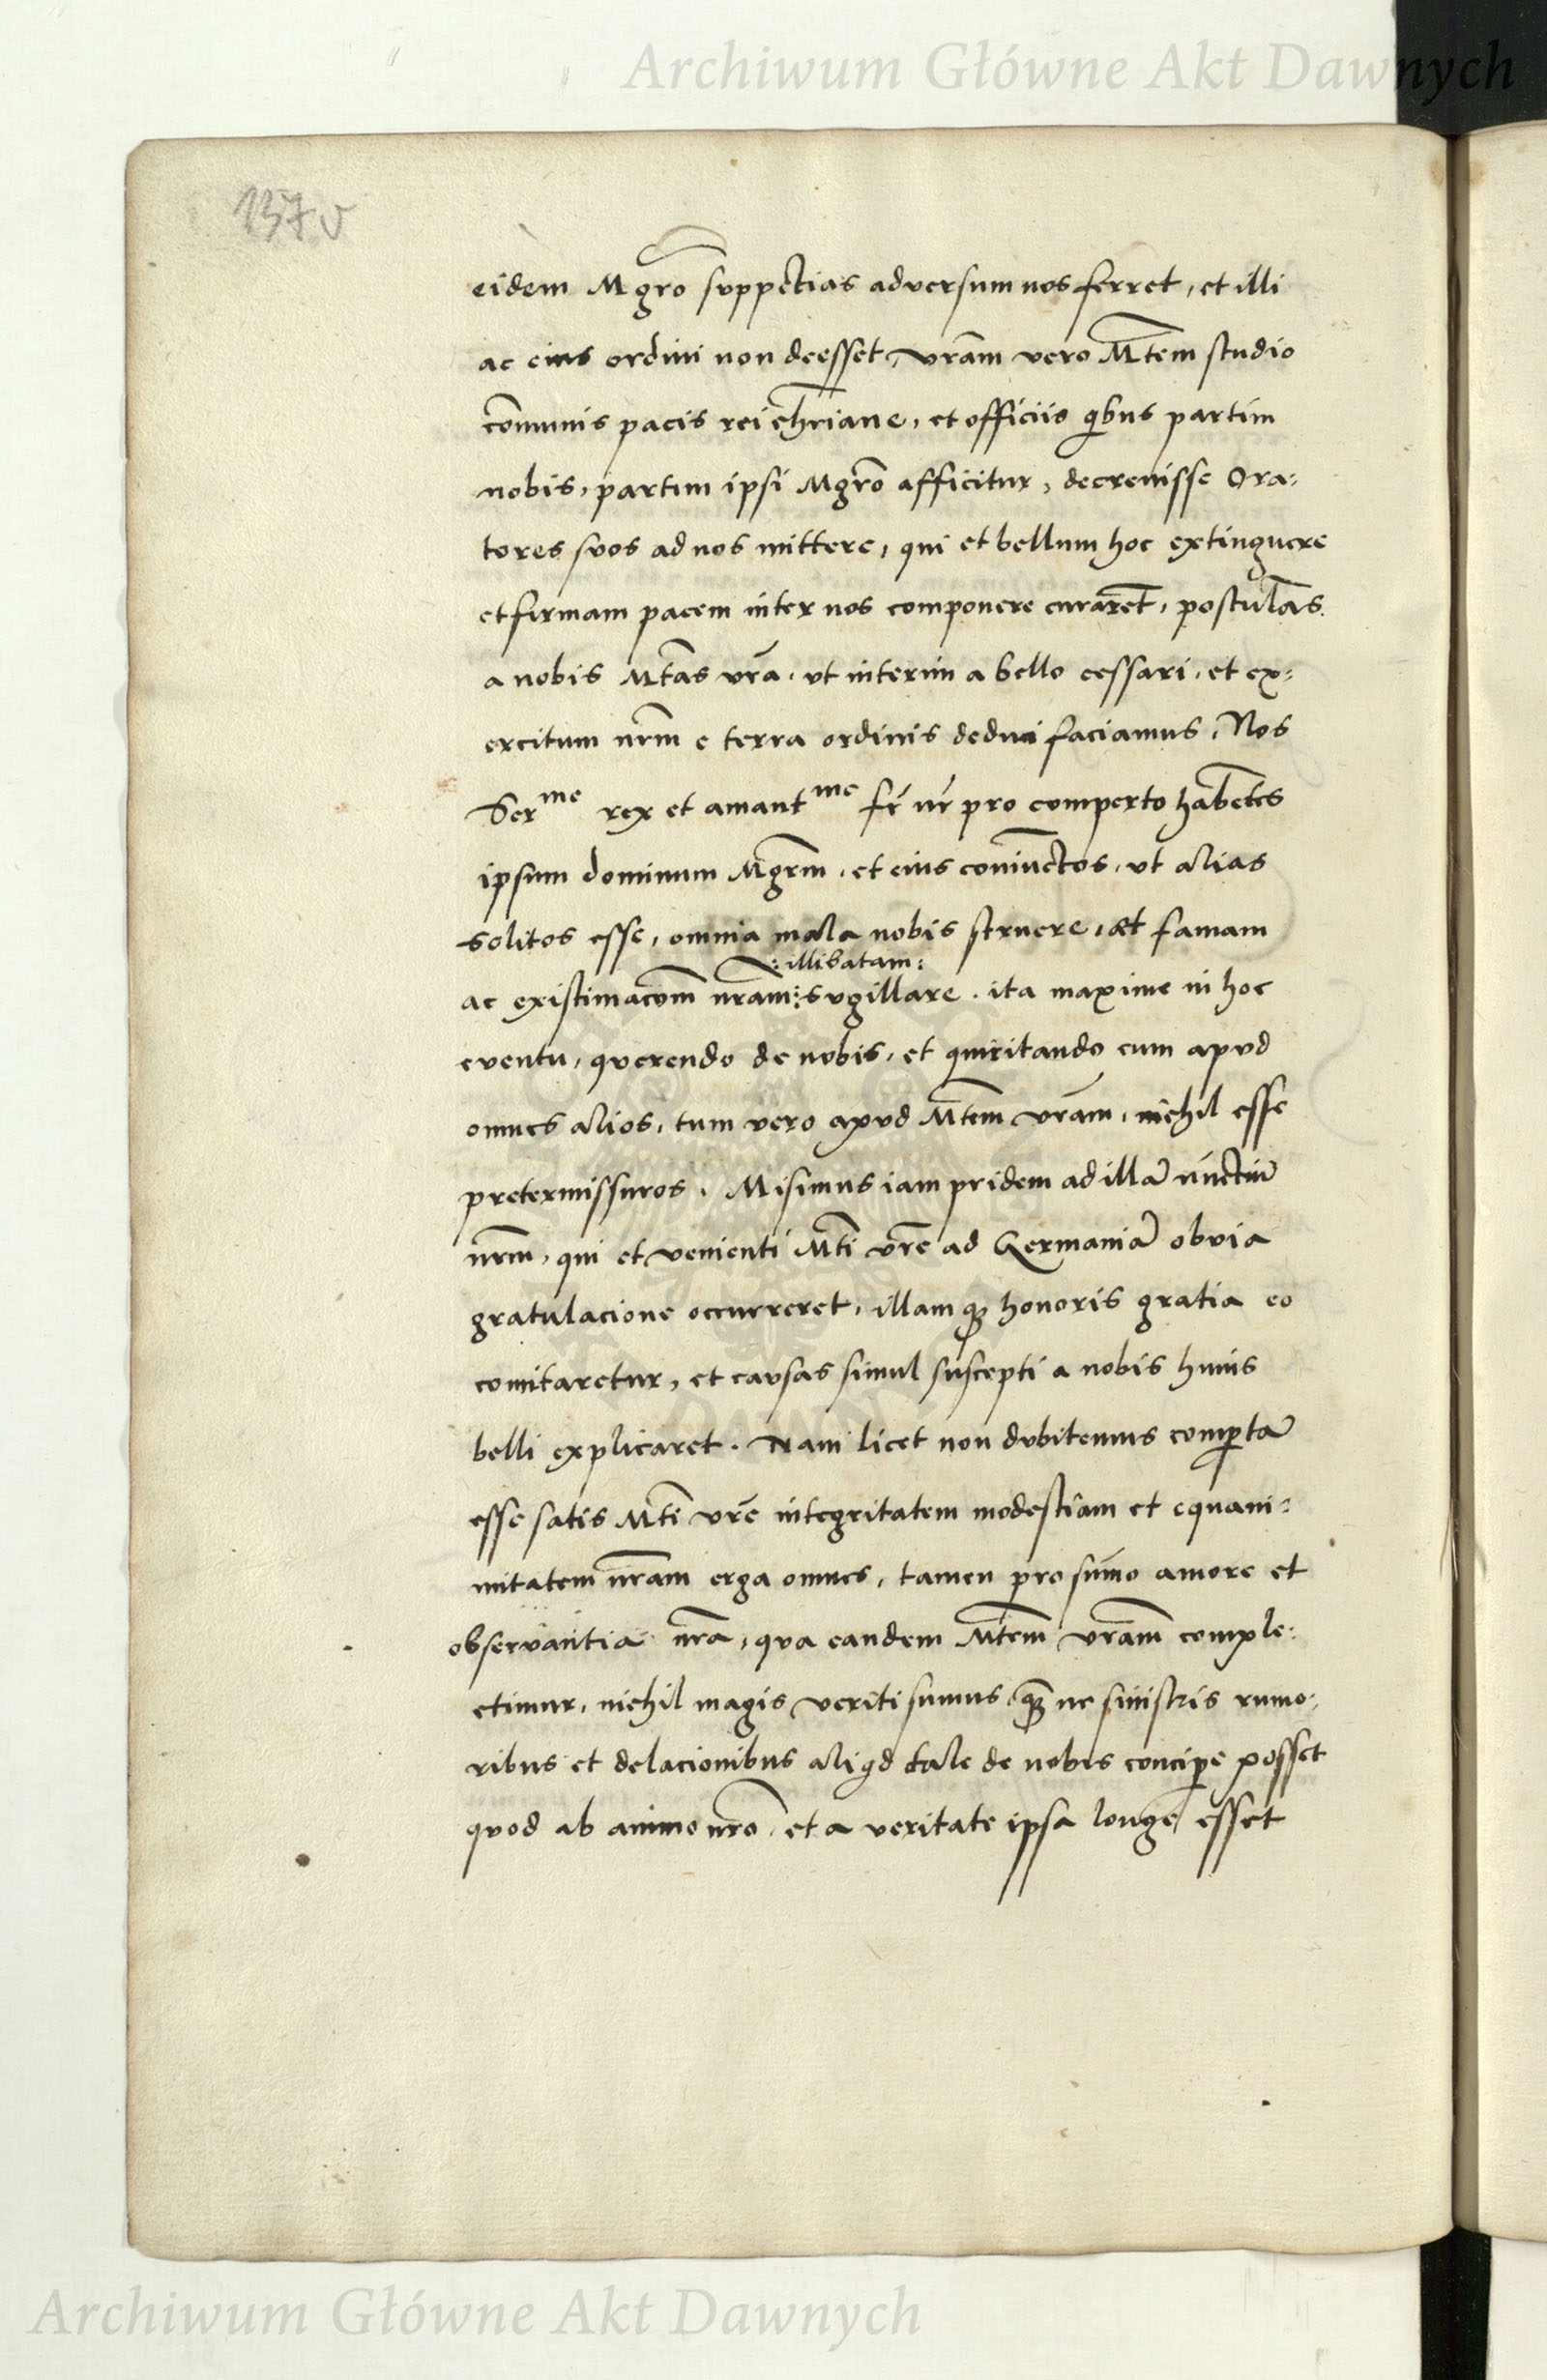 Archiwum Główne Akt Dawnych
137v
eidem Mgro͞ suppetias adversum nos ferret, et illi
ac eius ordini non deesset, vra͞m vero M͞tem studio
co͞munis pacis rei ch͞riane, et officiis qibus partim
nobis, partim ipsi Mgro͞ afficitur, decrevisse Ora:
tores suos ad nos mittere, qui et bellum hoc extinguere
et firmam pacem inter nos componere curare͞t, postula͞s.
a nobis Mta͞s vra͞. ut interim a bello cessari, et ex:
ercitum nr͞m e terra ordinis deduci faciamus. Nos
Serme rex et amantme fr͞ nr͞ pro comperto habe͞tes
ipsum dominum Mgr͞m, et eius coniunctos, ut alias
solitos esse, omnia mala nobis struere, et famam
:illibatam:
ac existimaco͞m nra͞m: sugillare. ita maxime in hoc
eventu, querendo de nobis, et quiritando cum apud
omnes alios, tum vero apud M͞tem vra͞m, niehil esse
pretermissuros. Misimus iam pridem ad illa͞ nu͞ctiu͞
nr͞m, qui et venienti M͞ti vre͞ ad Germania͞ obvia
gratulacione occurreret, illamq͞ honoris gratia eo
comitaretur, et causas simul suscepti a nobis huius
belli explicaret. Nam licet non dubitemus comperta͞
esse satis M͞ti vre͞ integritatem modestiam et equani:
mitatem nra͞m erga omnes, tamen pro su͞mo amore et
observantia nra͞, qua eandem M͞tem vra͞m comple:
ctimur, niehil magis veriti sumus q͞ ne sinistris rumo:
ribus et delacionibus aliqd tale de nobis concipe͞ posset
quod ab animo nro͞, et a veritate ipsa longe esset
Archiwum Główne Akt Dawnych